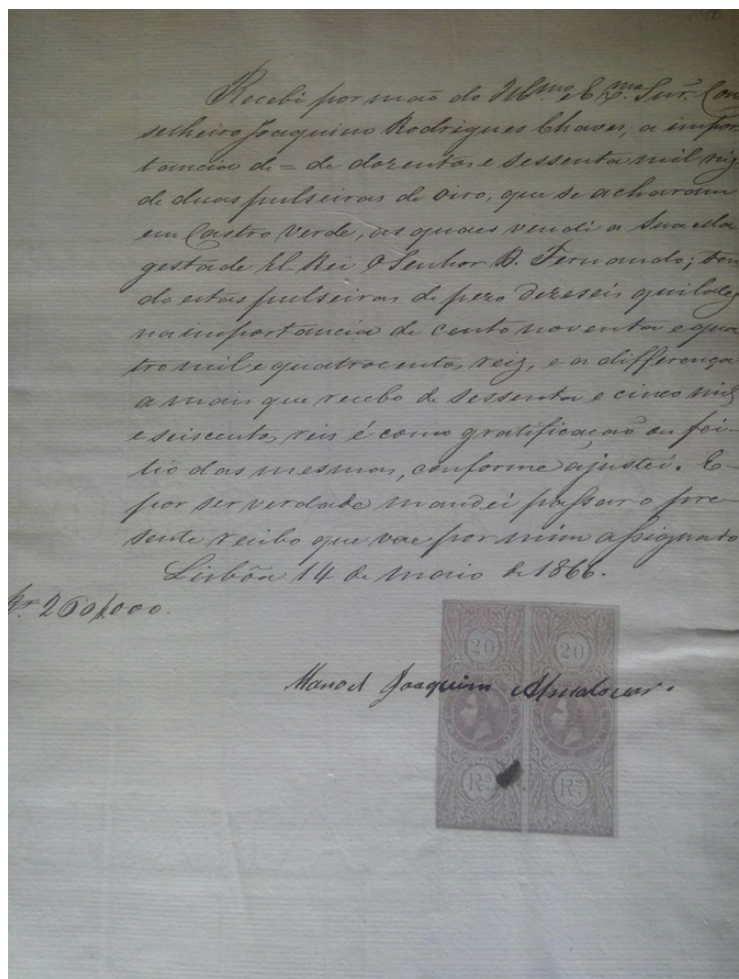 Recebi por mão do Illmo. e Exmo. Snr. Con
selheiro Joaquim Rodrigues Chaves, a impor
tancia de = de dozentos e sessenta mil reiz
de duas pulseiras de oiro, que se acharam
em Castro Verde, as quaes vendi a Sua Ma
gestade El-Rei O Senhor D. Fernando; ten
do estas pulseiras de pezo dezeseis quilates
na importancia de cento noventa e qua
tro mil e quatrocentos reiz, e a differença
a mais que recebo de sessenta e cinco mil
e seiscentos reis é como gratificação ou fei-
tio das mesmas, conforme ajustei. E
por ser verdade mandei passar o pre-
sente recibo que vae por mim assignado
Lisbôa 14 de Maio de 1866.
Rs. 260$000.
20 20
Manoel Joaquim
Rs. Rs.